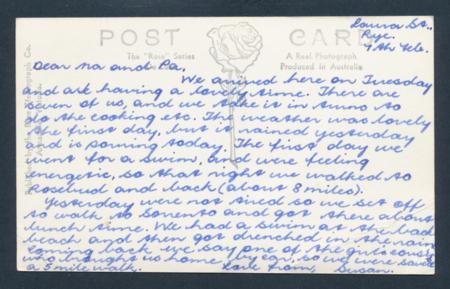 POST CARD
The "Rose" Series
A Real Photograph
Produced in Australia
Laura St.,
Rye.
9th Feb.
Dear Ma and Pa.
We arrived here on Tuesday
and are having a lovely time. There are
seven of us, and we take it in turns to
do the cooking etc. The weather was lovely
the first day, but it rained yesterday
and is pouring today. The first day we
went for a swim, and were feeling
energetic, so that night we walked to
Rosebud and back (about 8 miles).
Yesterday were not tired so we set off
to walk to Sorrento and got there about
lunch time. We had a swim at the
beach and then got drenched in the rain
coming back. we say one of the girls
who brought us home by car, so we were saved
a 5 mile walk.
Love from, Susan.